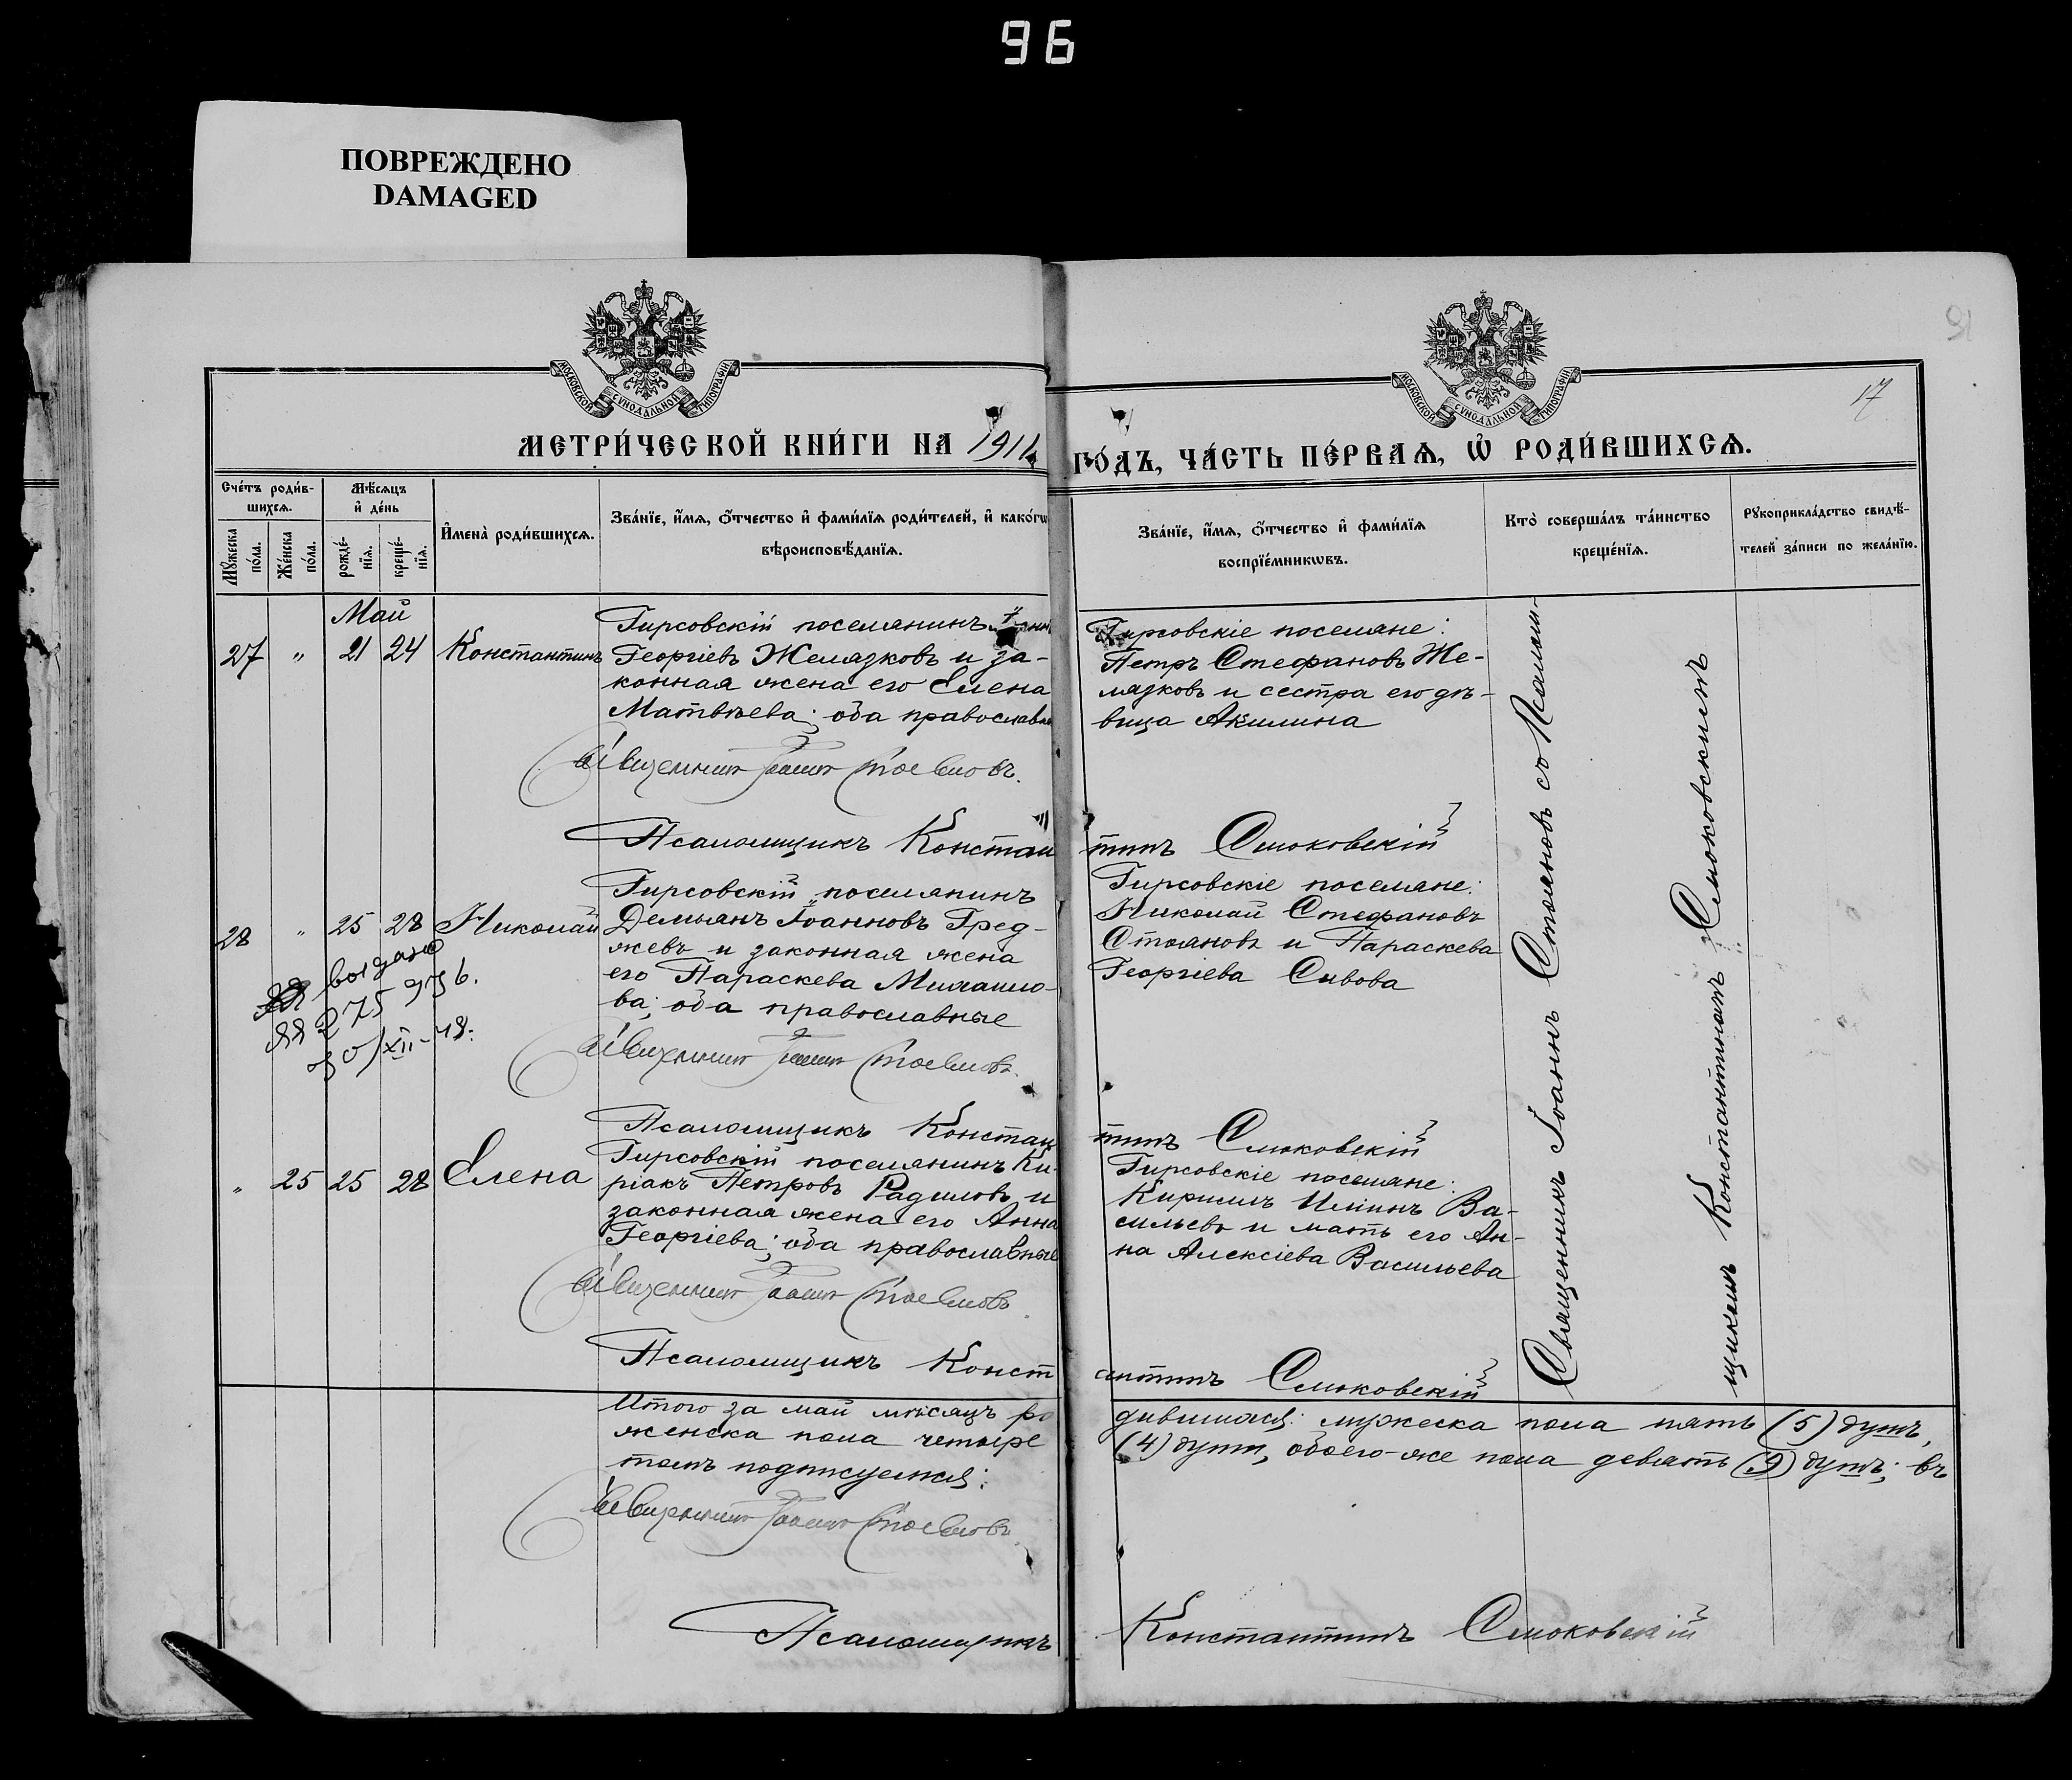 96
ПОВРЕЖДЕНО
DAMAGED
МОСКОВСКОЙ СѴНОДАЛЬНОЙ ТИПОГРАФІИ
МОСКОВСКОЙ СѴНОДАЛЬНОЙ ТИПОГРАФІИ
91
17
МЕТРИ́ЧЕСКОЙ КНИ́ГИ НА 1911 ГО́ДЪ, ЧА́СТЬ ПЕ́РВАѦ, Ѡ҆ РОДИ́ВШИХСѦ.
Сче́тъ роди́в-
шихсѧ.
Мꙋ́жеска по́ла.
Же́нска по́ла.
Мѣ́сѧцъ
и҆ де́нь
рожде́-
нїѧ.
креще́-
нїѧ.
И҆мена̀ роди́вшихсѧ.
Зва́нїе, и҆́мѧ, ѻ҆́тчество и҆ фами́лїѧ роди́телей, и҆ како́гѡ
вѣроисповѣ́данїѧ.
Зва́нїе, и҆́мѧ, ѻ҆́тчество и҆ фами́лїѧ
воспрїе́мникѡвъ.
Кто̀ соверша́лъ та́инство
креще́нїѧ.
Рꙋкоприкла́дство свидѣ́-
телей за́писи по жела́нїю.
Май
27 " 21 24 Константинъ
Гирсовскій поселянинъ
Георгіевъ Желязковъ и за-
конная жена его Елена
Матвѣева; оба православн
Гирсовскіе поселяне:
Петръ Стефановъ Же-
лязковъ и сестра его дѣ-
вица Акилина
Священникъ Іоаннъ Стояновъ
Псаломщикъ Константинъ Смоковскій
28 " 25 28 Николай
Гирсовскій поселянинъ
Демьянъ Іоанновъ Гред-
жевъ и законная жена
его Параскева Михаило-
ва; оба православные
Гирсовскіе поселяне:
Николай Стефановъ
Стояновъ и Параскева
Георгіева Сивова
выдано
ЯЯ 275936.
30/XII-48:
Священникъ Іоаннъ Стояновъ
Псаломщикъ Константинъ Смоковскій
" 25 25 28 Елена
Гирсовскій поселянинъ Ки-
ріакъ Петровъ Радиловъ и
законная жена его Анна
Георгіева; оба православные
Гирсовскіе поселяне:
Кириллъ Илiинъ Ва-
сильевъ и мать его Ан-
на Алексіева Васильева
Священникъ Іоаннъ Стояновъ
Псаломщикъ Константинъ Смоковскій
Священникъ Іоаннъ Стояновъ со Псалом-
щикомъ Константиномъ Смоковскимъ
Итого за май мѣсяцъ родившихся: мужеска пола пять (5) душъ,
женска пола четыре (4) души, обоего-же пола девять (9) душъ; въ
томъ подписуемся:
Священникъ Іоаннъ Стояновъ
Псаломщикъ Константинъ Смоковскій